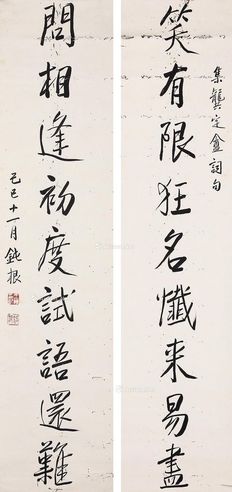 集龔定盦詞句
笑有限狂名懺来易盡
問相逢初度試語還難
己巳十一月鈍根